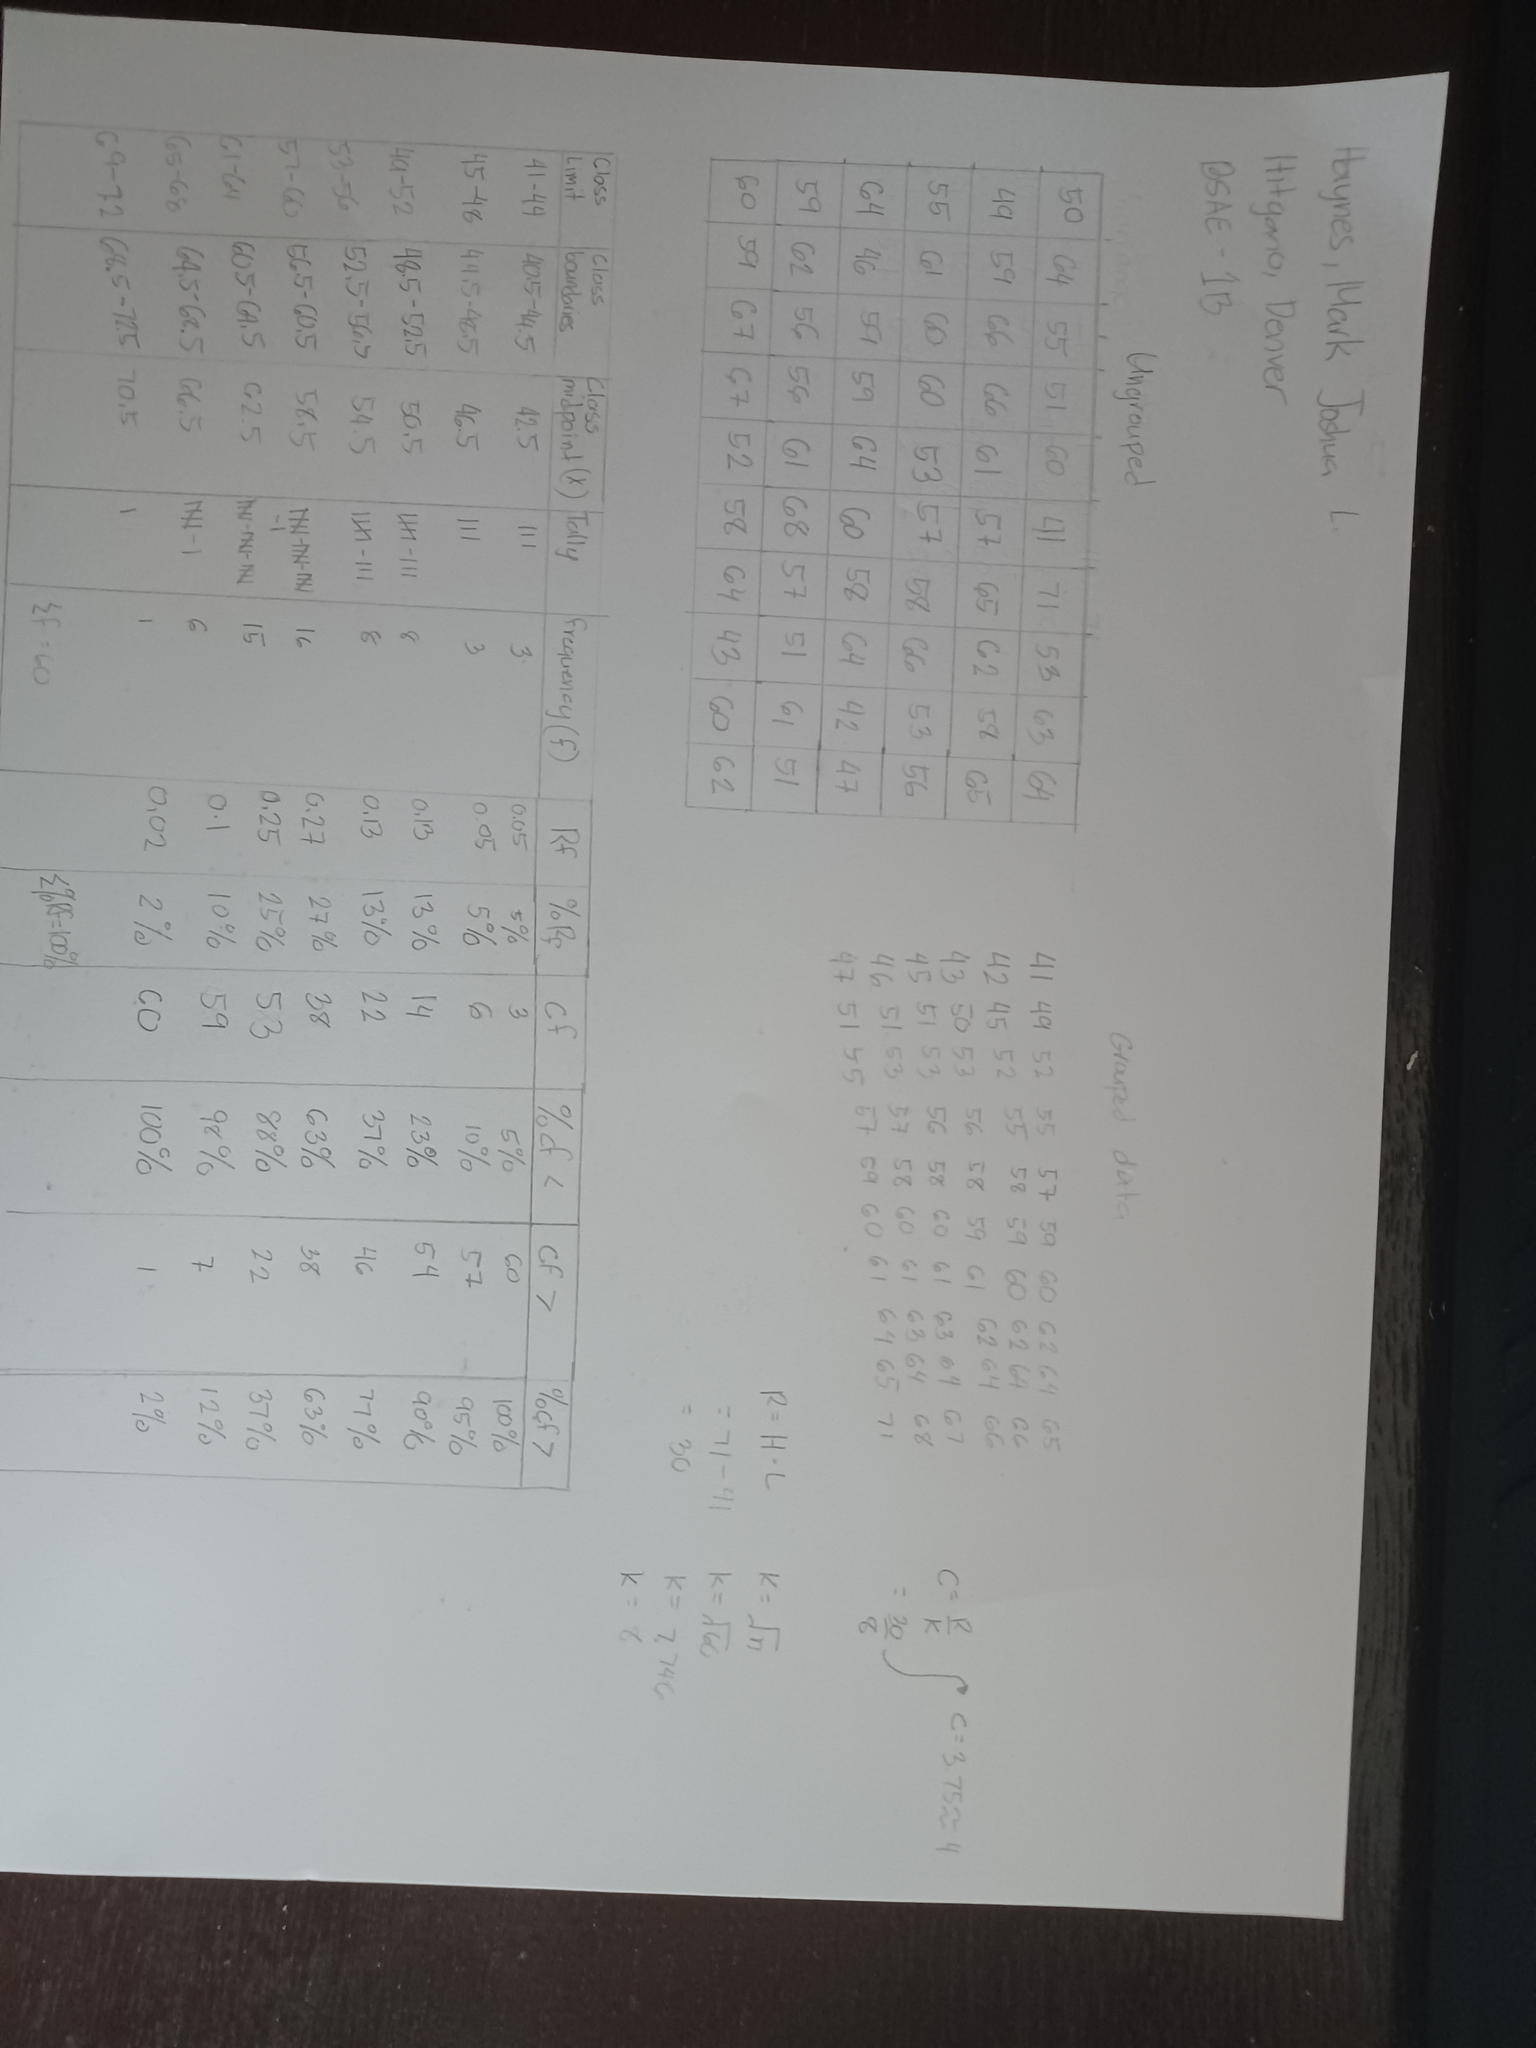 Haynes, Mark Joshua L.
Hitgano, Denver
BSAE - 1B
Ungrouped
50 64 55 51 60 41 71 53 63 64
49 59 66 66 61 57 65 62 58 65
55 61 60 60 53 57 58 66 53 56
64 46 59 59 64 60 58 64 42 47
59 62 56 56 61 68 57 51 61 51
60 59 67 67 52 58 64 43 60 62
Grouped data
41 49 52 55 57 59 60 62 64 65
42 45 52 55 58 59 60 62 64 66
43 50 53 56 58 59 61 62 64 66
45 51 53 56 58 60 61 63 64 67
46 51 53 57 58 60 61 63 64 68
47 51 55 57 59 60 61 64 65 71
R = H - L
= 71 - 41
= 30
K = √n
K = √60
K = 7.746
K = 8
C = R/K
= 30/8
C = 3.75 ≈ 4
Class Limit Class boundries Class midpoint (x) Tally Frequency (f) Rf %Rf Cf %cf < Cf > %cf >
41-44 40.5-44.5 42.5 III 3 0.05 5% 3 5% 60 100%
45-48 44.5-48.5 46.5 III 3 0.05 5% 6 10% 57 95%
49-52 48.5-52.5 50.5 IIII-III 8 0.13 13% 14 23% 54 90%
53-56 52.5-56.5 54.5 IIII-III 8 0.13 13% 22 37% 46 77%
57-60 56.5-60.5 58.5 IIII-IIII-IIII-I 16 0.27 27% 38 63% 38 63%
61-64 60.5-64.5 62.5 IIII-IIII-IIII 15 0.25 25% 53 88% 22 37%
65-68 64.5-68.5 66.5 IIII-I 6 0.1 10% 59 98% 7 12%
69-72 68.5-72.5 70.5 I 1 0.02 2% 60 100% 1 2%
Σf = 60 Σ%Rf = 100%